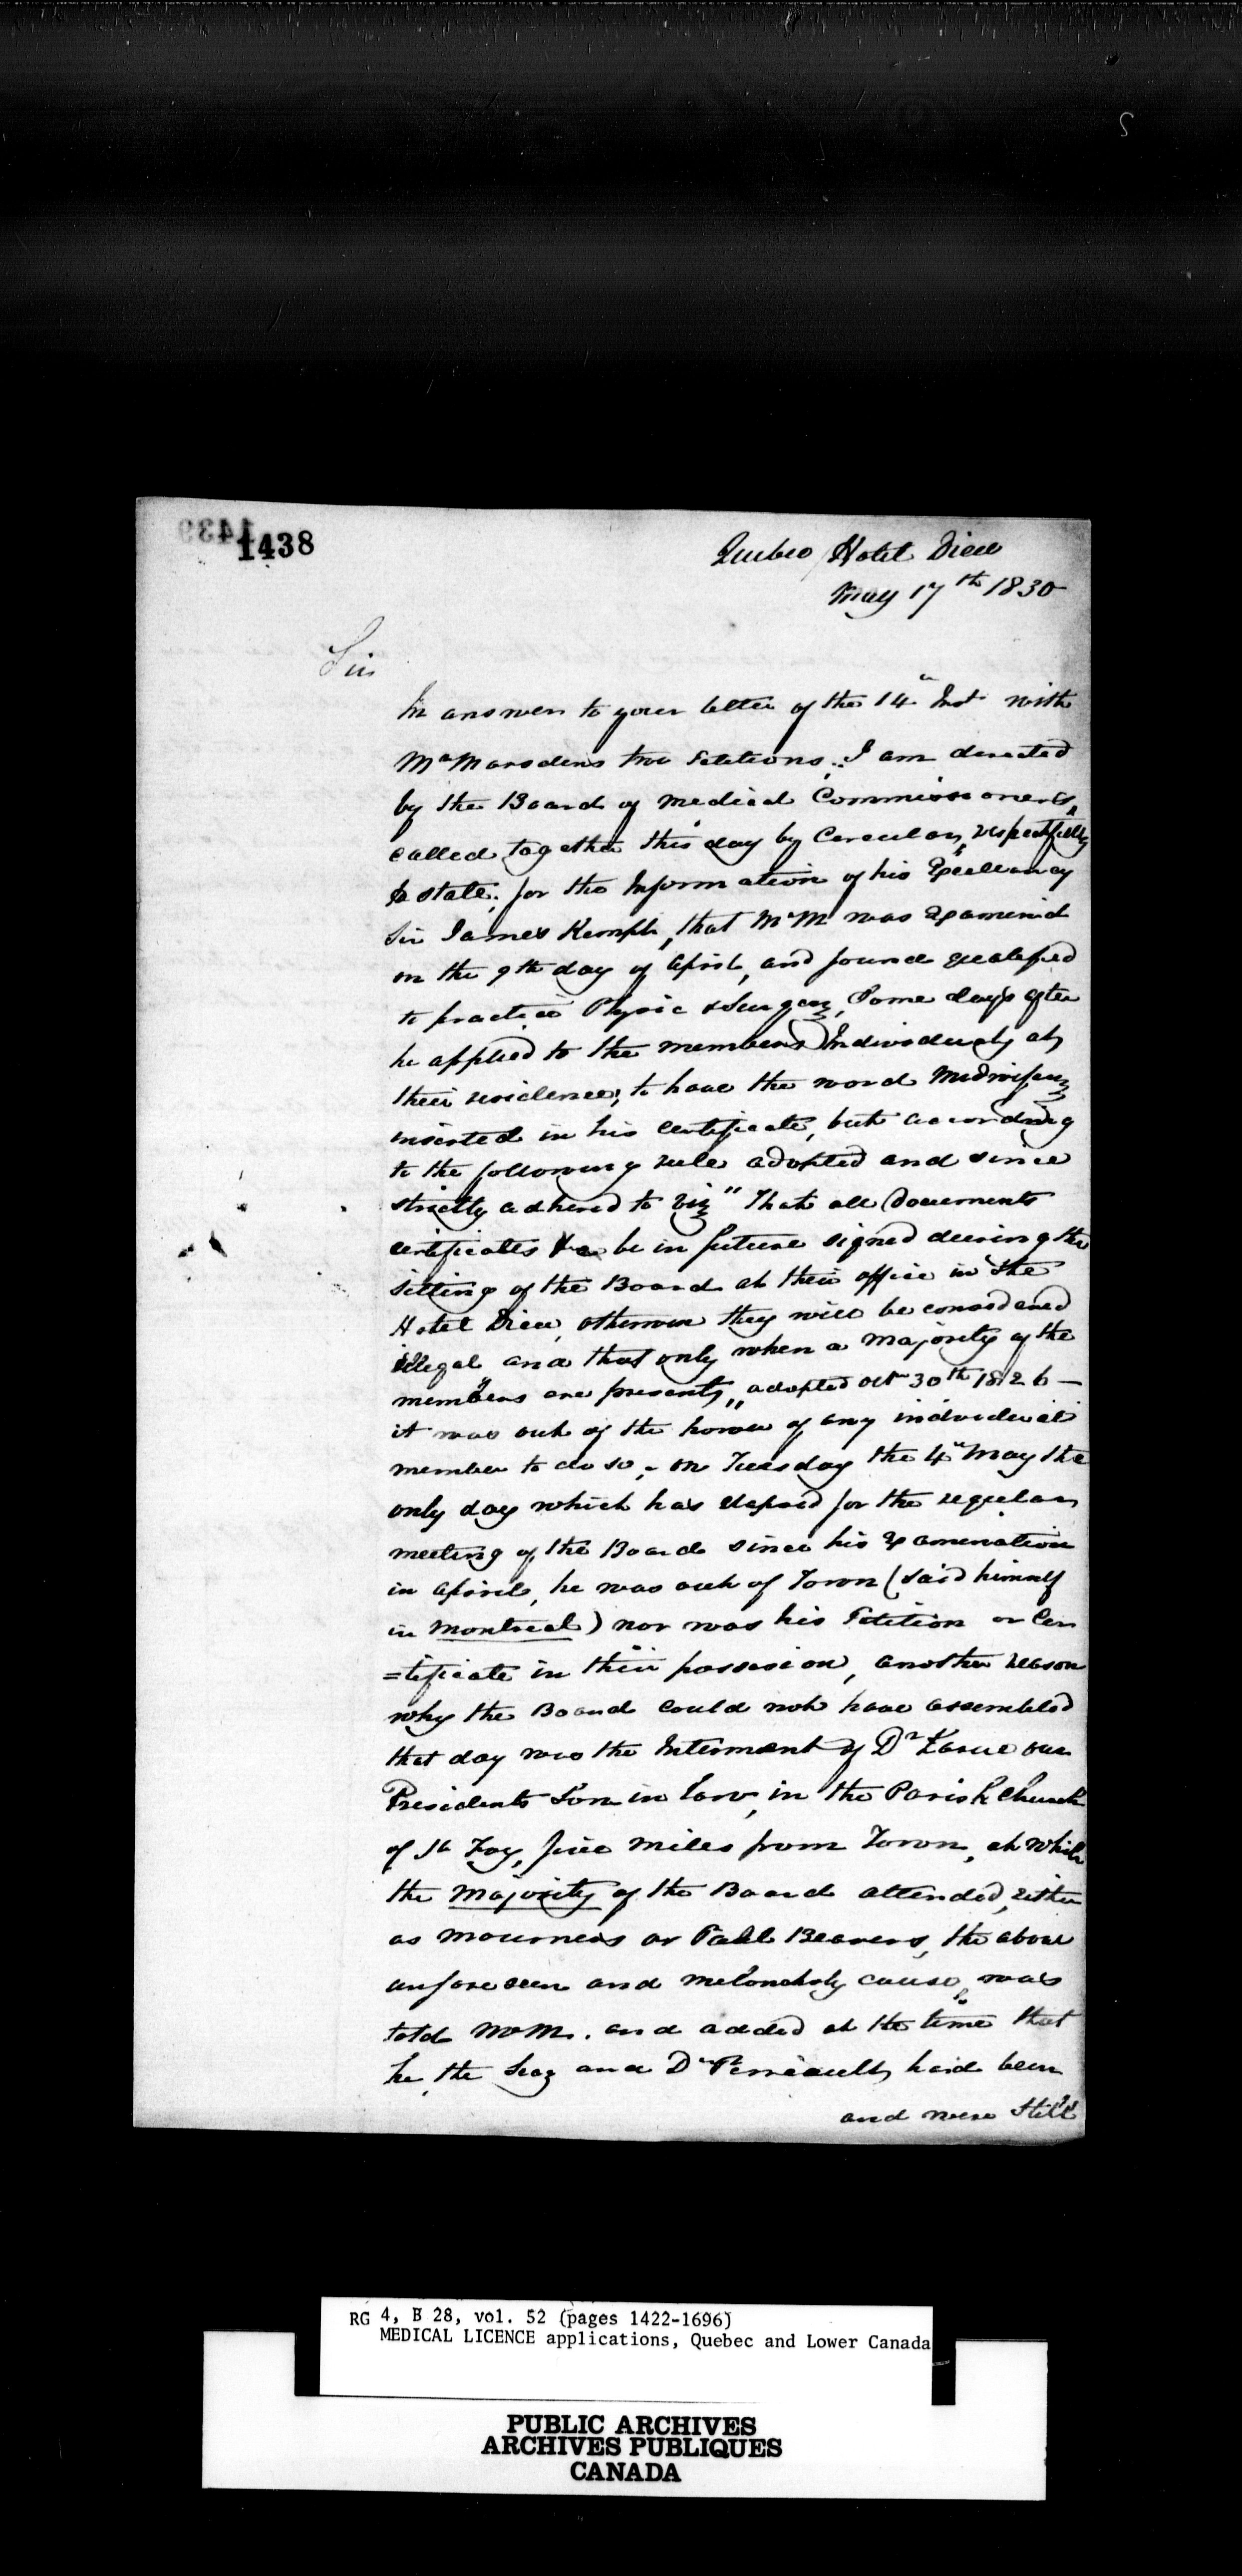 1438
Quebec Hotel Dieu
May 17th 1830
Sir
In answer to your letter of the 14th Inst with
Mr Marsdens two Petitions, I am directed
by the Board of Medical Commissioners,
called together this day by Circular, respectfully
to state, for the Information of his Excellency
Sir James Kempt, that Mr M was Examined
on the 9th day of April, and found qualified
to practice Physic & Surgery, Some days after
he applied to the members Individualy at
their residence, to have the word Midwifery
inserted in his certificate, but according
to the following rule adopted and since
strictly adhered to viz "That all Documents
certificates &c be in future signed during the
sitting of the Board at their office in the
Hotel Dieu, otherwise they will be considered
illegal and that only when a majority of the
members are present," adopted Octr 30th 1826 —
it was out of the power of any individual
member to do so, - on Tuesday the 4th May the
only day which has elapsed for the regular
meeting of the Board since his Examination
in April, he was out of Town (said himself
in Montreal) nor was his Petition or Cer
=tificate in their possession, another reason
why the Board could not have assembled
that day was the Interment of Dr Larue our
Presidents Son in Law, in the Parish Church
of St Foy, five miles from Town, at which
the Majority of the Board attended, either
as mourners or Pall Bearers, the above
unforeseen and meloncholy cause, was
told Mr M. and added at the time that
he, the Secy and Dr Perrault, had been
and were still
RG 4, B 28, vol. 52 (pages 1422-1696)
MEDICAL LICENCE applications, Quebec and Lower Canada
PUBLIC ARCHIVES
ARCHIVES PUBLIQUES
CANADA